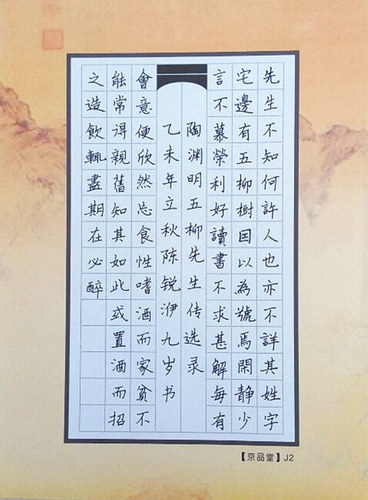 先生不知何許人也亦不詳其姓字
宅邊有五柳樹囙以為號焉閑靜少
言不慕榮利好讀書不求甚解每有
陶渊明五柳先生传选录
乙未年立秋陈锐洢九岁书
會意便欣然忘食性嗜酒而家貧不
能常得親舊知其如此或置酒而招
之造飲輒盡期在必醉
【京品堂】J2